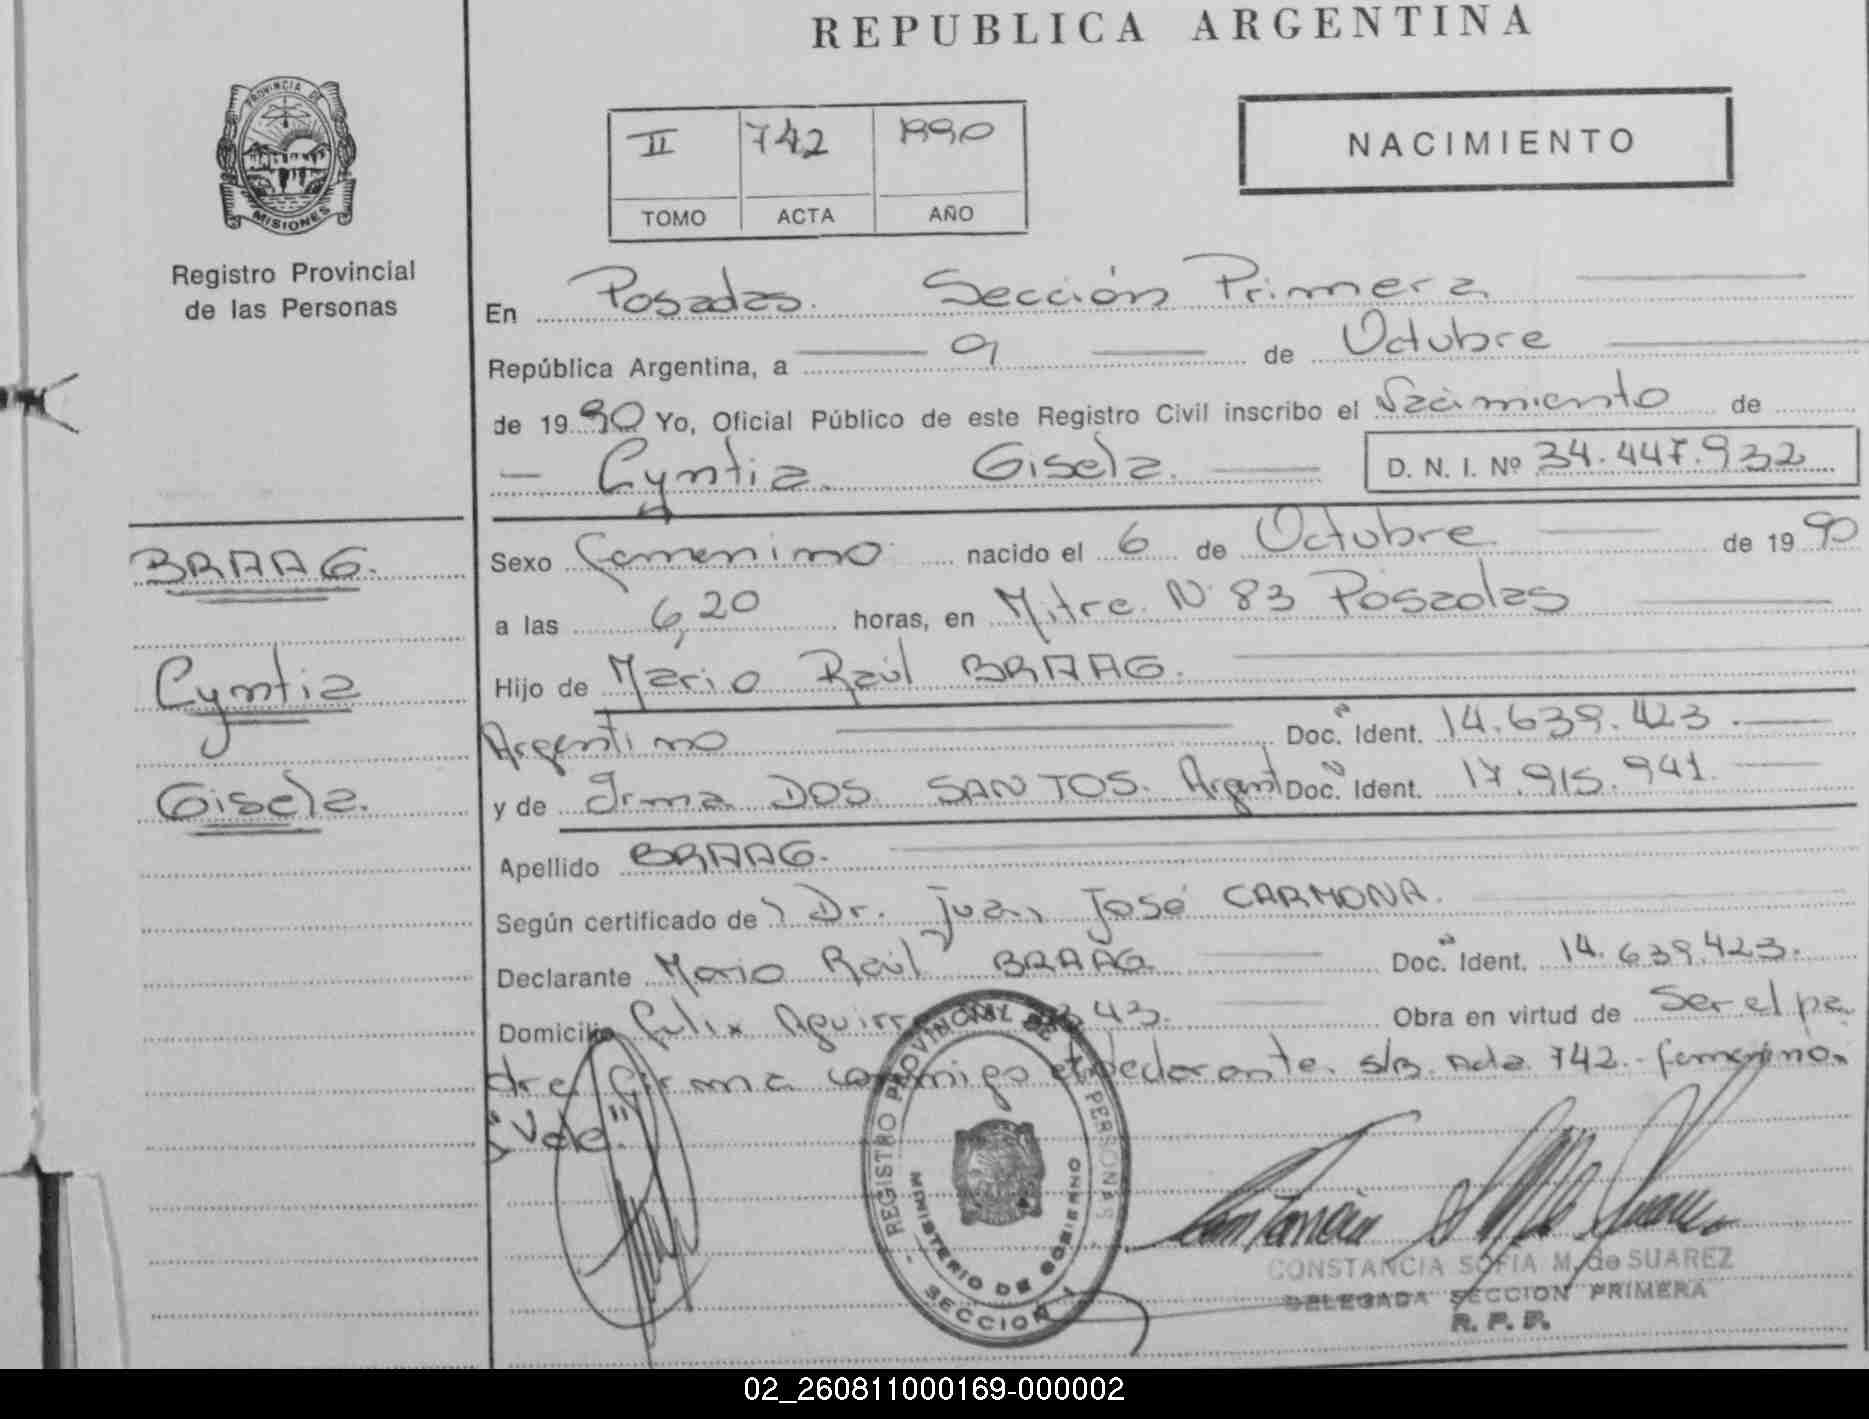 REPUBLICA ARGENTINA
PROVINCIA DE
MISIONES
Registro Provincial
de las Personas
II 742 1990
TOMO ACTA AÑO
NACIMIENTO
En Posadas. Sección Primera
República Argentina, a 9 de Octubre
de 19 90 Yo, Oficial Público de este Registro Civil inscribo el Nacimiento de
Cyntia Gisela. D. N. I. Nº 34.447.932
BRAAG.
Cyntia
Gisela.
Sexo femenino nacido el 6 de Octubre de 19 90
a las 6,20 horas, en Mitre N° 83 Posadas
Hijo de Mario Raúl BRAAG.
Argentino Doc. Ident. 14.639.423.
y de Irma DOS SANTOS. Argent Doc. Ident. 17.915.941.
Apellido BRAAG.
Según certificado de Dr. Juan José CARMONA.
Declarante Mario Raúl BRAAG Doc. Ident. 14.639.423.
Domicilio Felix Aguirre 43. Obra en virtud de Ser el pa
dre firma conmigo el declarante. s/b. Acta 742.- femenino.
"Vale."
REGISTRO PROVINCIAL DE LAS PERSONAS
MINISTERIO DE GOBIERNO
SECCION 1
CONSTANCIA SOFIA M. de SUAREZ
DELEGADA SECCION PRIMERA
R. P. P.
02_260811000169-000002